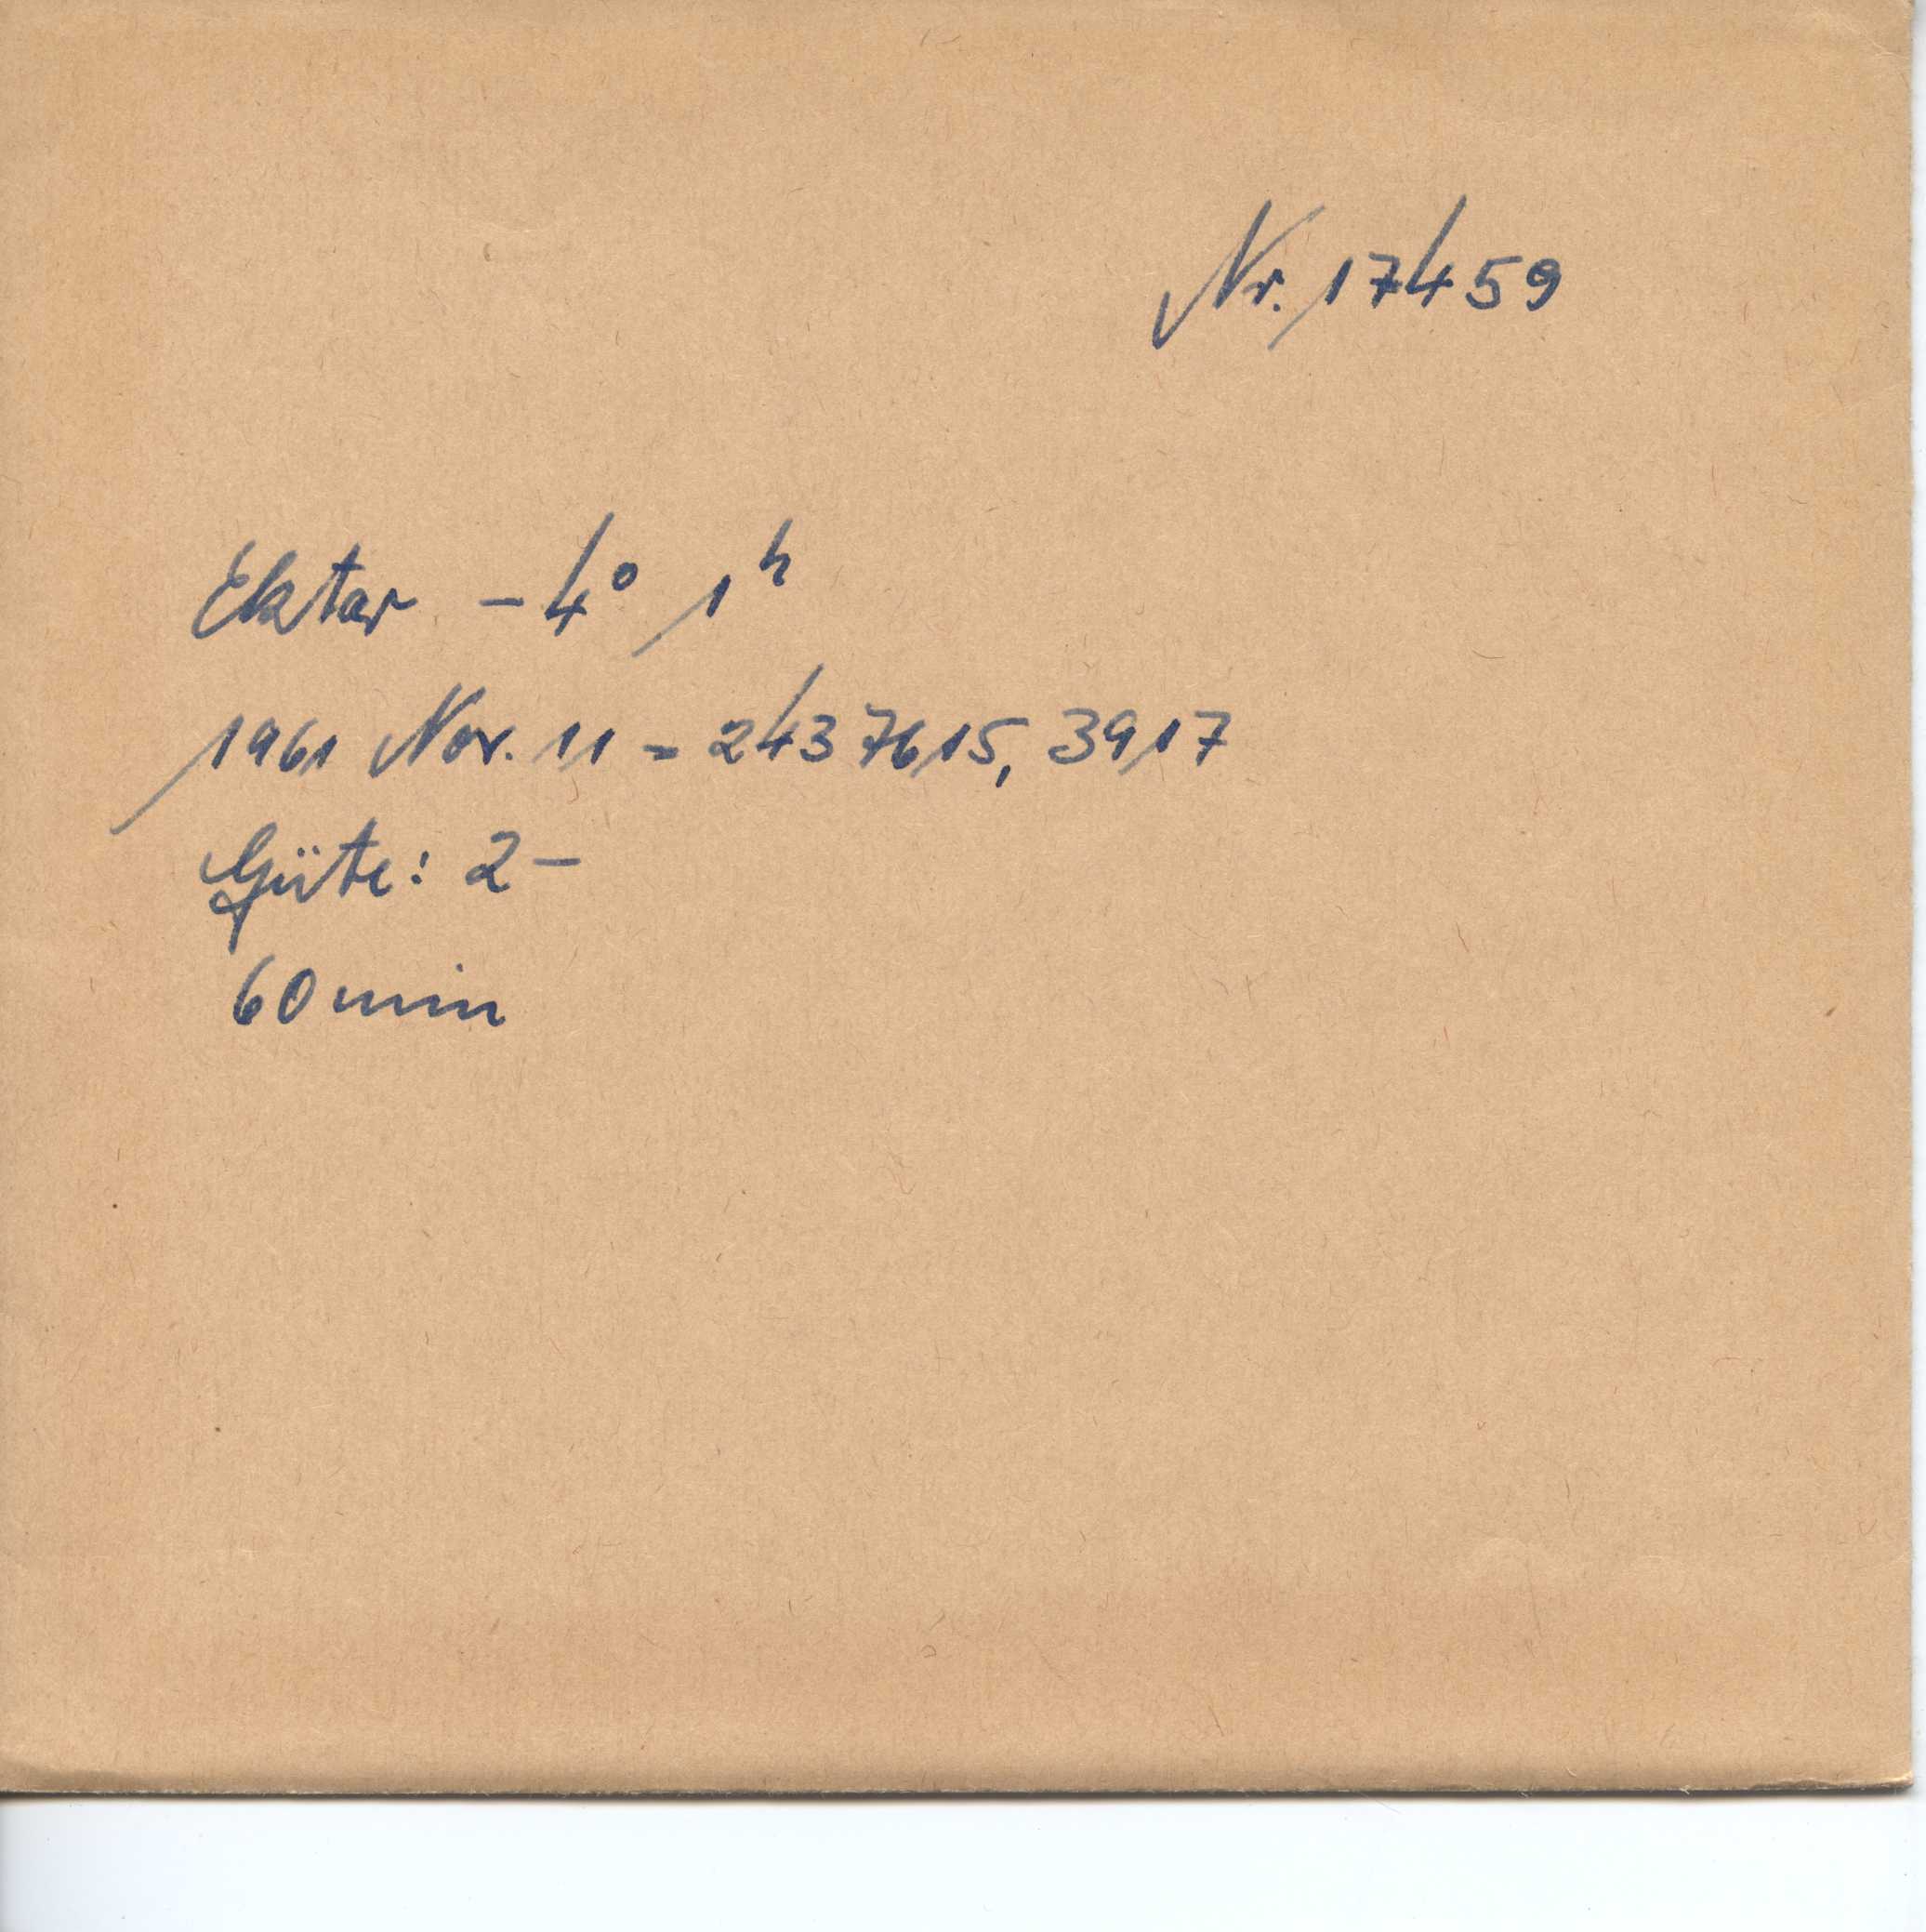 Nr. 17459
Ektar - 4° 1ʰ
1961 Nov. 11 = 2437615,3917
Güte: 2-
60 min